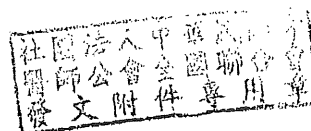 社團法人中華民
醫師公會全國聯會
發文附件專用章